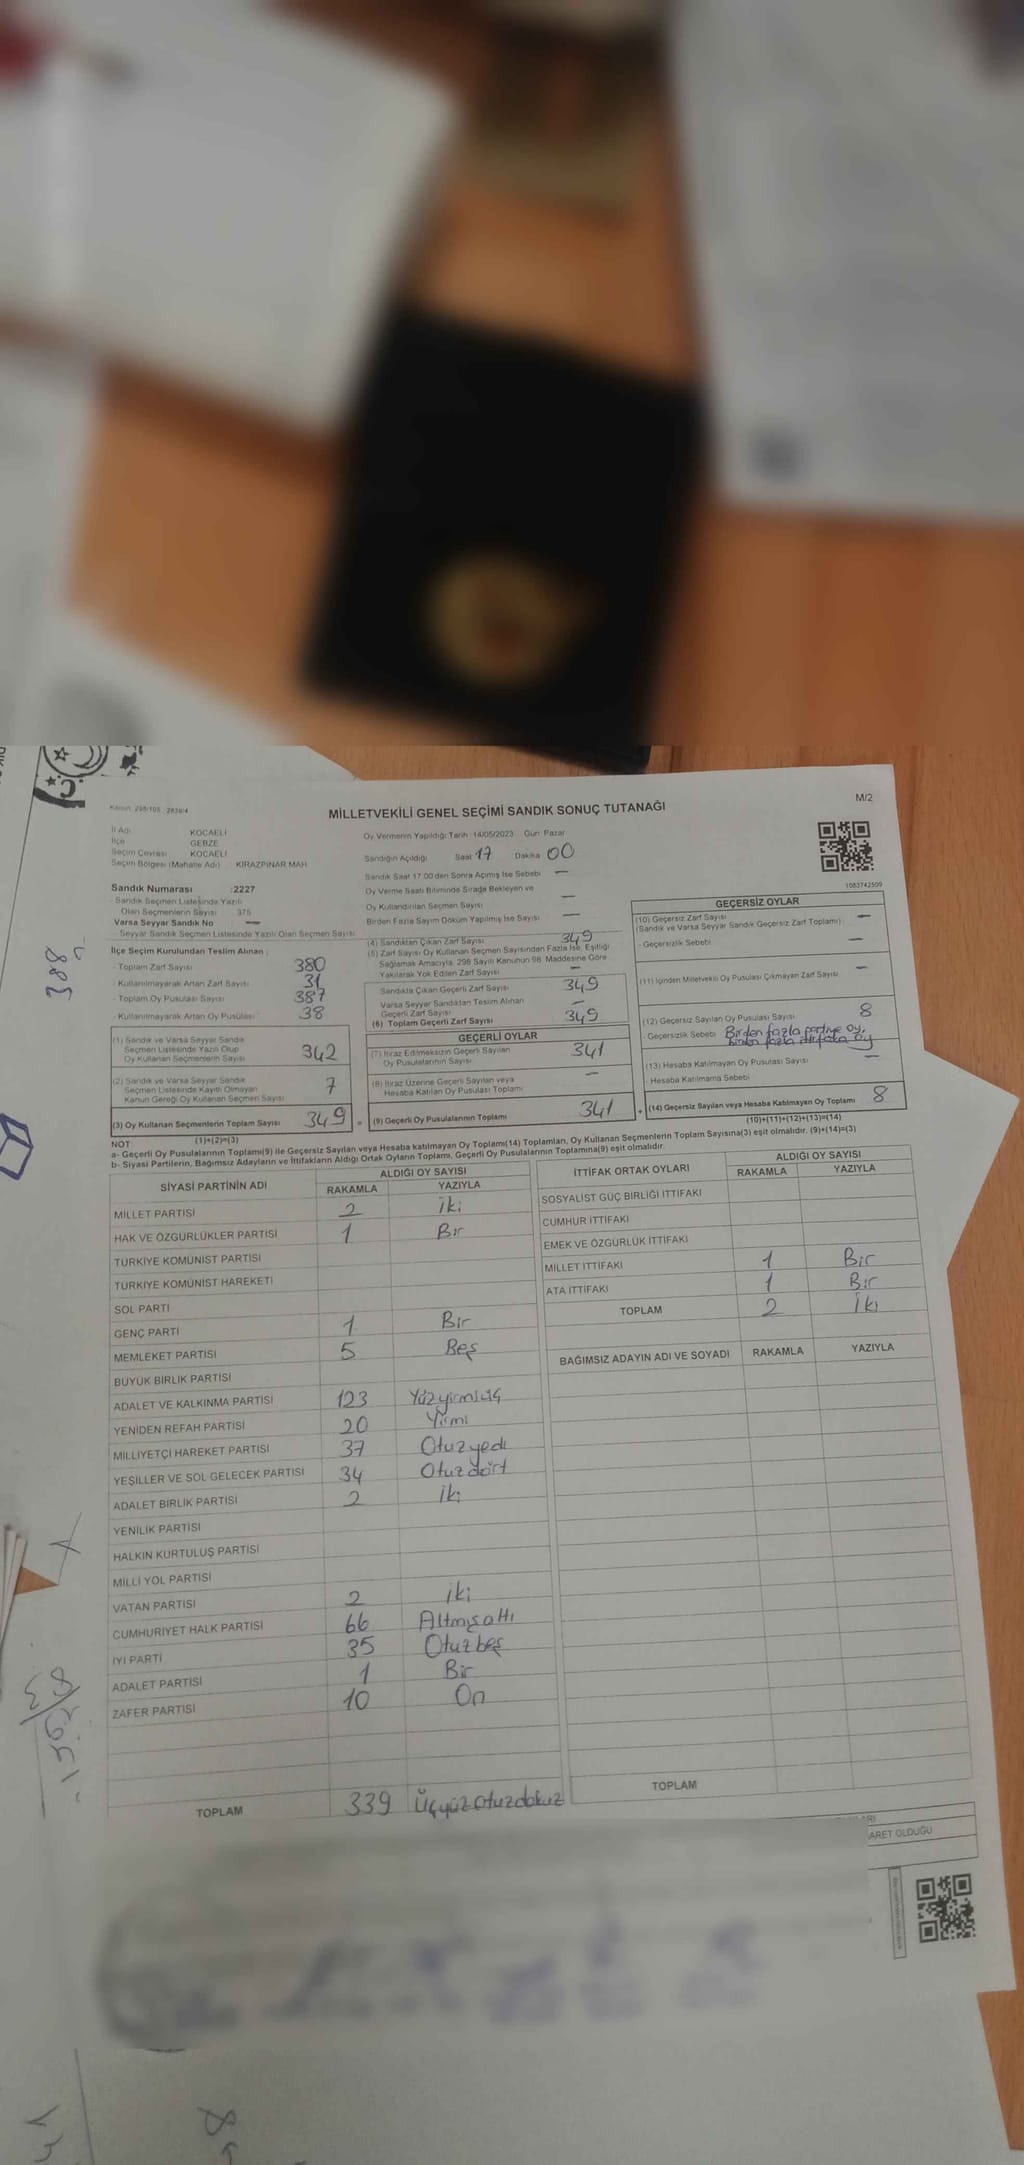 Kanun: 298/105, 2839/4
MİLLETVEKİLİ GENEL SEÇİMİ SANDIK SONUÇ TUTANAĞI
M/2
İl Adı KOCAELİ
İlçe GEBZE
Seçim Çevresi KOCAELİ
Seçim Bölgesi (Mahalle Adı) : KİRAZPINAR MAH
Sandık Numarası :2227
- Sandık Seçmen Listesinde Yazılı
Olan Seçmenlerin Sayısı 375
Varsa Seyyar Sandık No —
- Seyyar Sandık Seçmen Listesinde Yazılı Olan Seçmen Sayısı
İlçe Seçim Kurulundan Teslim Alınan ;
- Toplam Zarf Sayısı 380
- Kullanılmayarak Artan Zarf Sayısı 31
- Toplam Oy Pusulası Sayısı 387
- Kullanılmayarak Artan Oy Pusulası 38
(1) Sandık ve Varsa Seyyar Sandık
Seçmen Listesinde Yazılı Olup
Oy Kullanan Seçmenlerin Sayısı 342
(2) Sandık ve Varsa Seyyar Sandık
Seçmen Listesinde Kayıtlı Olmayan
Kanun Gereği Oy Kullanan Seçmen Sayısı 7
(3) Oy Kullanan Seçmenlerin Toplam Sayısı 349
(1)+(2)=(3)
Oy Vermenin Yapıldığı Tarih :14/05/2023 Gün: Pazar
Sandığın Açıldığı Saat 17 Dakika 00
Sandık Saat 17:00'den Sonra Açılmış İse Sebebi —
Oy Verme Saati Bitiminde Sırada Bekleyen ve
Oy Kullandırılan Seçmen Sayısı —
Birden Fazla Sayım Döküm Yapılmış İse Sayısı —
(4) Sandıktan Çıkan Zarf Sayısı 349
(5) Zarf Sayısı Oy Kullanan Seçmen Sayısından Fazla İse, Eşitliği
Sağlamak Amacıyla, 298 Sayılı Kanunun 98. Maddesine Göre
Yakılarak Yok Edilen Zarf Sayısı —
Sandıkta Çıkan Geçerli Zarf Sayısı 349
Varsa Seyyar Sandıktan Teslim Alınan
Geçerli Zarf Sayısı —
(6) Toplam Geçerli Zarf Sayısı 349
GEÇERLİ OYLAR
(7) İtiraz Edilmeksizin Geçerli Sayılan
Oy Pusulalarının Sayısı 341
(8) İtiraz Üzerine Geçerli Sayılan veya
Hesaba Katılan Oy Pusulası Toplamı —
(9) Geçerli Oy Pusulalarının Toplamı 341
1083742509
GEÇERSİZ OYLAR
(10) Geçersiz Zarf Sayısı —
(Sandık ve Varsa Seyyar Sandık Geçersiz Zarf Toplamı)
- Geçersizlik Sebebi —
(11) İçinden Milletvekili Oy Pusulası Çıkmayan Zarf Sayısı —
(12) Geçersiz Sayılan Oy Pusulası Sayısı 8
- Geçersizlik Sebebi Birden fazla partiye oy,
birden fazla ittifaka oy
(13) Hesaba Katılmayan Oy Pusulası Sayısı —
Hesaba Katılmama Sebebi
(14) Geçersiz Sayılan veya Hesaba Katılmayan Oy Toplamı 8
(10)+(11)+(12)+(13)=(14)
NOT:
a- Geçerli Oy Pusulalarının Toplamı(9) ile Geçersiz Sayılan veya Hesaba katılmayan Oy Toplamı(14) Toplamları, Oy Kullanan Seçmenlerin Toplam Sayısına(3) eşit olmalıdır. (9)+(14)=(3)
b- Siyasi Partilerin, Bağımsız Adayların ve İttifakların Aldığı Ortak Oyların Toplamı, Geçerli Oy Pusulalarının Toplamına(9) eşit olmalıdır.
SİYASİ PARTİNİN ADI ALDIĞI OY SAYISI
RAKAMLA YAZIYLA
MİLLET PARTİSİ 2 İki
HAK VE ÖZGÜRLÜKLER PARTİSİ 1 Bir
TÜRKİYE KOMÜNİST PARTİSİ
TÜRKİYE KOMÜNİST HAREKETİ
SOL PARTİ
GENÇ PARTİ 1 Bir
MEMLEKET PARTİSİ 5 Beş
BÜYÜK BİRLİK PARTİSİ
ADALET VE KALKINMA PARTİSİ 123 Yüzyirmiüç
YENİDEN REFAH PARTİSİ 20 Yirmi
MİLLİYETÇİ HAREKET PARTİSİ 37 Otuzyedi
YEŞİLLER VE SOL GELECEK PARTİSİ 34 Otuzdört
ADALET BİRLİK PARTİSİ 2 İki
YENİLİK PARTİSİ
HALKIN KURTULUŞ PARTİSİ
MİLLİ YOL PARTİSİ
VATAN PARTİSİ 2 İki
CUMHURİYET HALK PARTİSİ 66 Altmışaltı
İYİ PARTİ 35 Otuzbeş
ADALET PARTİSİ 1 Bir
ZAFER PARTİSİ 10 On
TOPLAM 339 Üçyüzotuzdokuz
İTTİFAK ORTAK OYLARI ALDIĞI OY SAYISI
RAKAMLA YAZIYLA
SOSYALİST GÜÇ BİRLİĞİ İTTİFAKI
CUMHUR İTTİFAKI
EMEK VE ÖZGÜRLÜK İTTİFAKI
MİLLET İTTİFAKI 1 Bir
ATA İTTİFAKI 1 Bir
TOPLAM 2 İki
BAĞIMSIZ ADAYIN ADI VE SOYADI RAKAMLA YAZIYLA
TOPLAM
ARET OLDUĞU
388